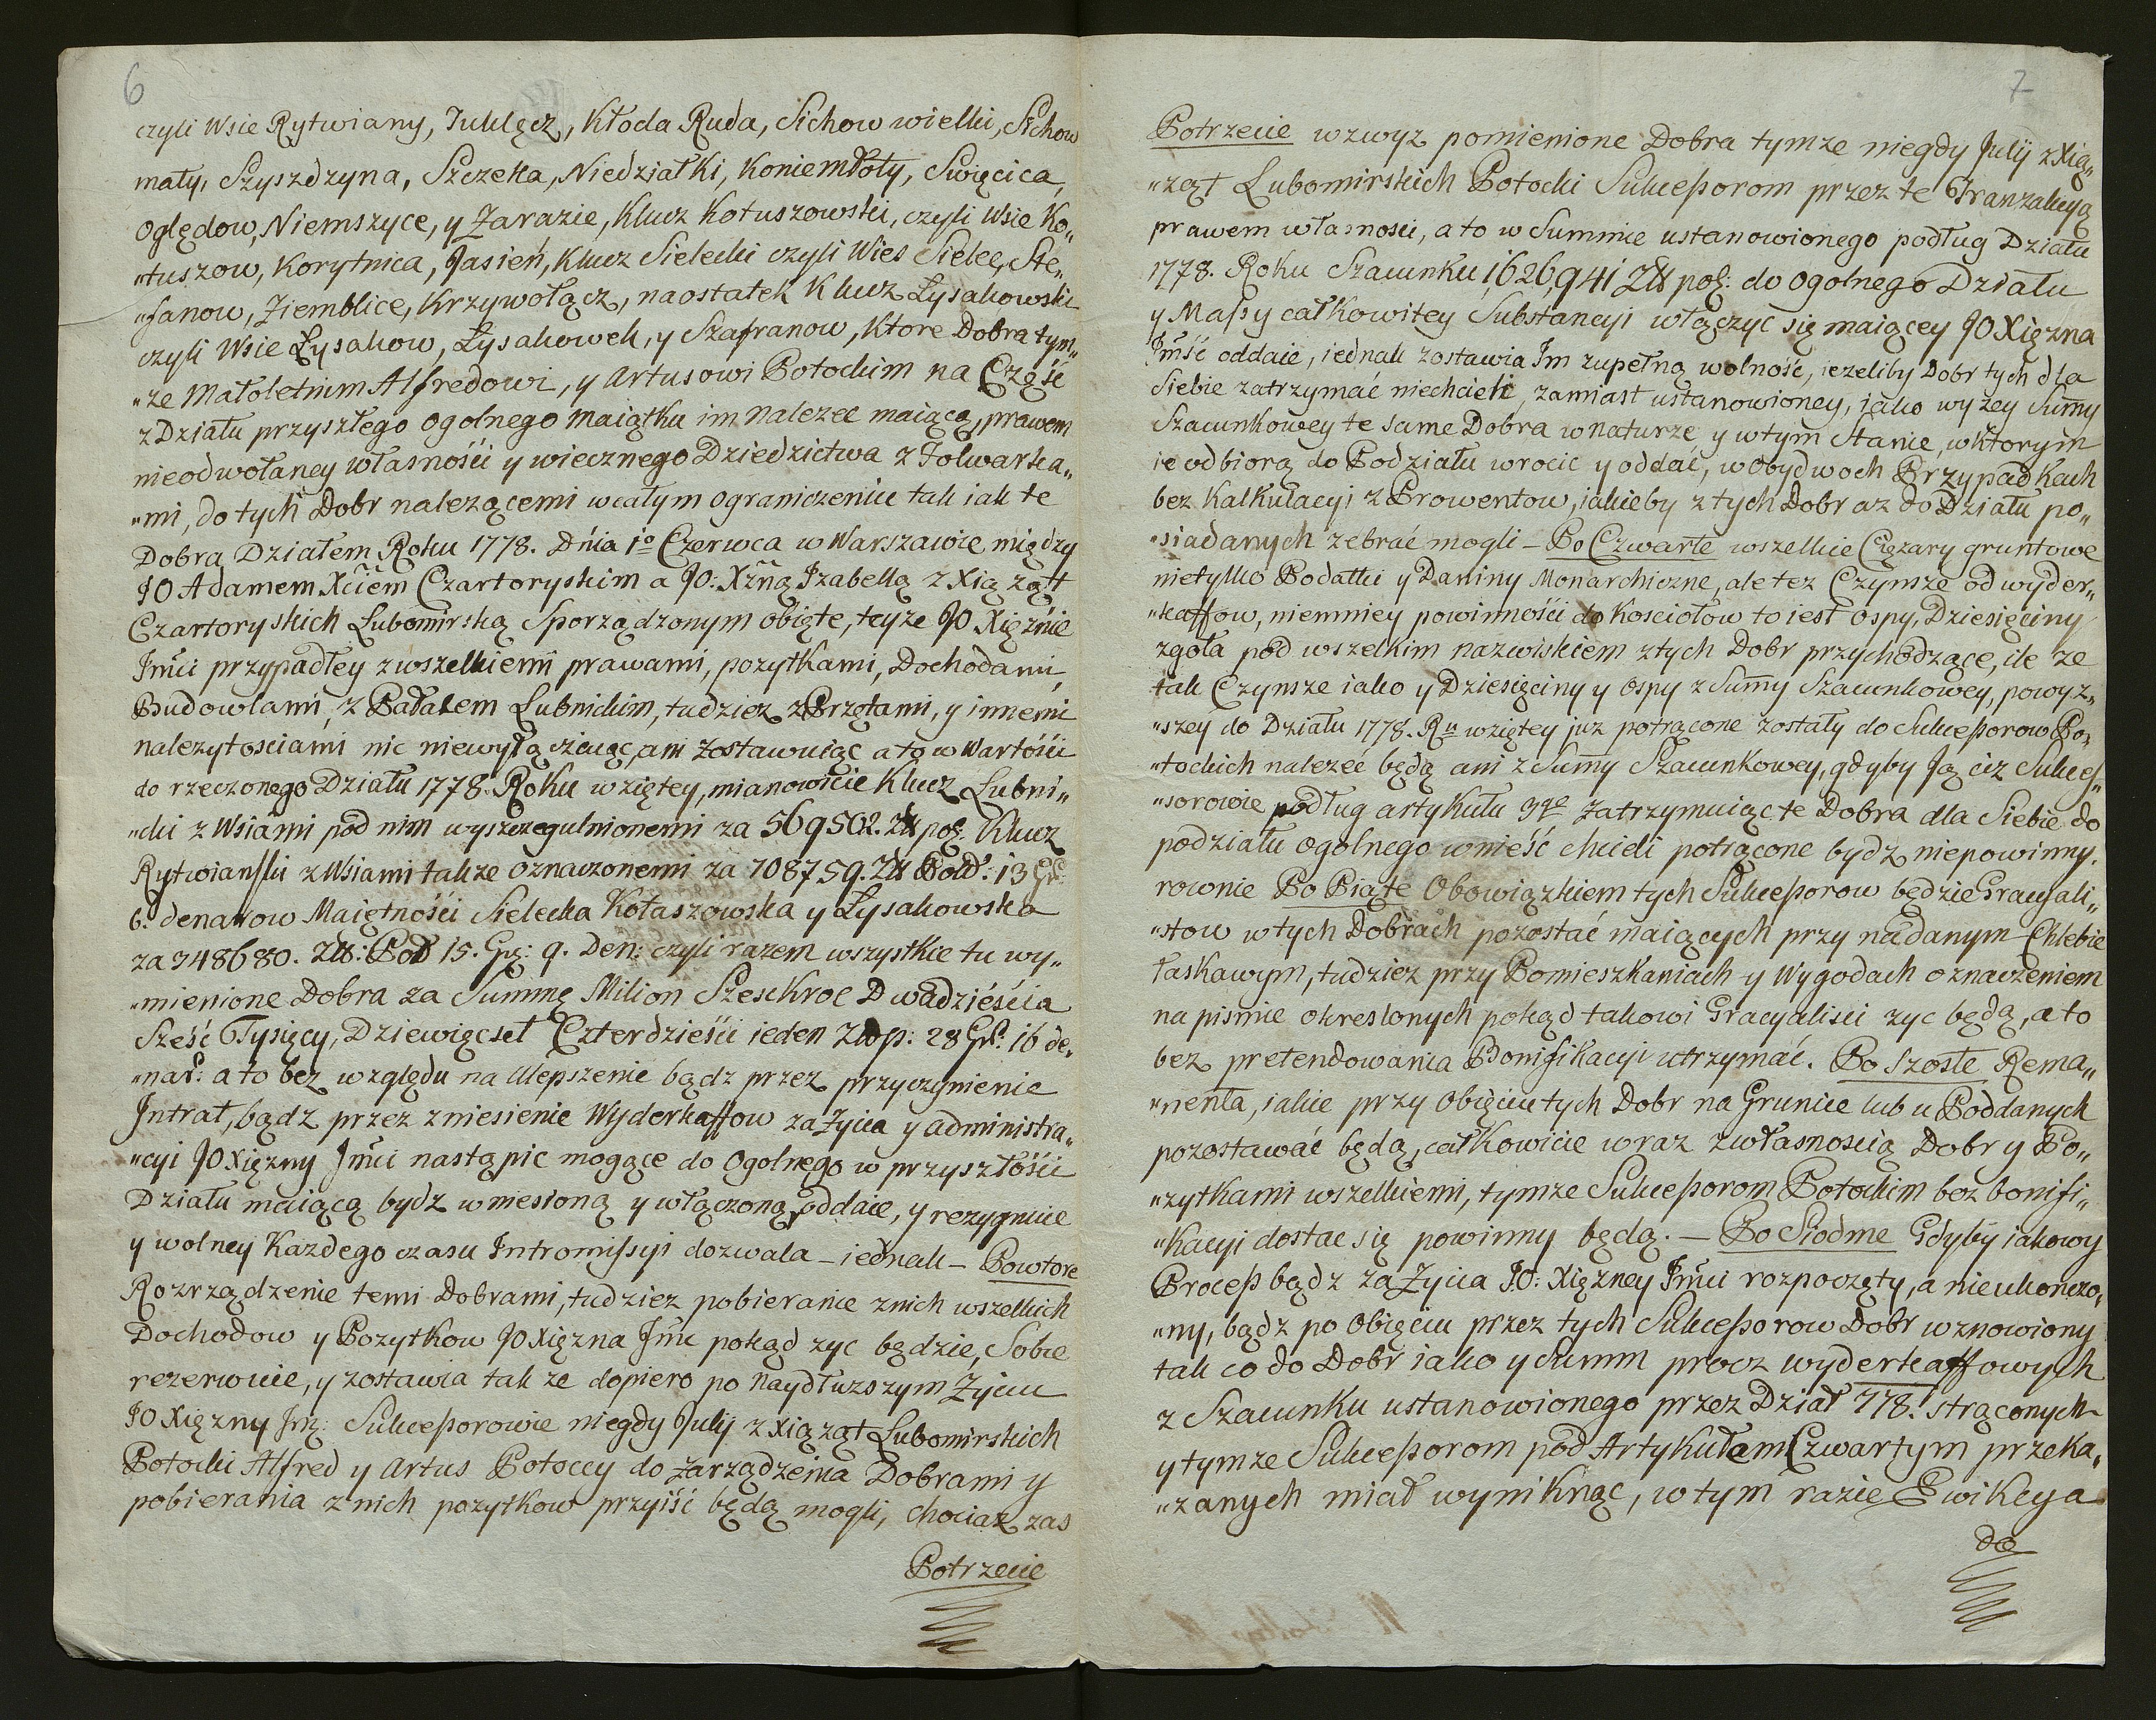 6
czyli Wsie Rytwiany, Tuklęcz, Kłoda Ruda, Sichow wielki, Sichow
mały, Szyszdzyna, Szczeka, Niedziałki, Koniemłoty, Swięcica,
Oględow, Niemszyce, y Zarazie, Klucz Kotuszowski, czyli Wsie Ko„
„tuszow, Korytnica, Jasień, Klucz Sielecki czyli Wies Sielec, Ste„
„fanow, Ziemblice, Krzywołącz, naostatek Klucz Łysakowski
czyli Wsie Łysakow, Łysakowek, y Szafranow, Ktore Dobra tym„
„ze Małoletnim Alfredowi, y Artusowi Potockim na Część
z Działu przyszłego ogolnego maiątku im nalezec maiącą, prawem
nieodwołaney własności y wiecznego Dziedzictwa z Folwarka„
„mi, do tych Dobr nalezącemi wcałym ograniczeniu tak iak te
Dobra Działem Roku 1778. Dnia 1o Czerwca w Warszawie między
JO Adamem Xciem Czartoryskim a JO: Xżną Izabellą z Xiąząt
Czartoryskich Lubomirską Sporządzonym obięte, teyze JO Xięznie
Jmci przypadłey z wszelkiemi prawami, pozytkami, Dochodami,
Budowlami, z Pałacem Lubnickim, tudziez z Sprzętami, y innemi
nalezytosciami nic niewyłączaiąc, ani zostawuiąc a to w Wartości
do rzeczonego Działu 1778. Roku wziętey, mianowicie Klucz Lubni„
„cki z Wsiami pod nim wyszczegulnionemi za 569502. Zł pol: Klucz
Rytwianski z Wsiami takze oznaczonemi za 708759. Zł Pol: 13 Gr:
6. denarow Maiętności Sielecka Kotaszowska y Łysakowska
za 348680. Zł: Pol 15. Gr: 9. Den: czyli razem wszystkie tu wy„
„mienione Dobra za Summę Milion Szesckroc Dwadzieścia
Sześć Tysięcy, Dziewięcset Czterdzieści ieden Złp: 28 Gr: 16 de„
„nar: a to bez względu na Ulepszenie bądz przez przyczynienie
Intrat, bądz przez zniesienie Wyderkaffow za Zycia y administra„
„cyi JO Xięzny Jmci nastąpic mogące do Ogolnego w przyszłości
Działu maiącą bydz wniesioną y włączoną, oddaie, y rezygnuie
y wolney Kazdego czasu Intromissyi dozwala – iednak – Powtore
Rozrządzenie temi Dobrami, tudziez pobieranie znich wszelkich
Dochodow y Pozytkow JO Xięzna Jmc pokąd zyc będzie, Sobie
rezerwuie, y zostawia tak ze dopiero po naydłuzszym Zyciu
JO Xięzny Jm: Sukcessorowie niegdy Julij z Xiąząt Lubomirskich
Potocki Alfred y Artus Potoccy do zarządzenia Dobrami y
pobierania z nich pozytkow przyiść będą mogli, chociaz zas
Potrzecie
7
Potrzecie wzwyz pomienione Dobra tymze niegdy Julij z Xią„
„ząt Lubomirskich Potocki Sukcessorom przez te Tranzakcyą
prawem własnosci, a to w Summie ustanowionego podług Działu
1778. Roku Szacunku 1,626,941 Zł pol: do ogolnego Działu
y Massy całkowitey Substancyi włączyc się maiącey JO Xięzna
Jmść oddaie, iednak zostawia Im zupełną wolność, iezeliby Dobr tych dla
Siebie zatrzymać niechcieli, zamiast ustanowioney, iako wyzey Summy
Szacunkowey te same Dobra w naturze y wtym Stanie, wktorym
ie odbiorą do Podziału wrocic y oddać, wobydwoch Przypadkach
bez Kalkulacyi z Prowentow, iakieby z tych Dobr az do Działu po„
„siadanych zebrać mogli – Po Czwarte wszelkie Cięzary gruntowe
nietylko Podatki y Daniny Monarchiczne, ale tez Czynsze od wyder„
„kaffow, niemniey powinności do Kosciołow to iest ospy, Dziesięciny
zgoła pod wszelkim nazwiskiem z tych Dobr przychodzące, ile ze
tak Czynsze iako y Dziesięciny y Ospy z Summy Szacunkowey, powyz„
„szey do Działu 1778. Ru wziętey juz potrącone zostały do Sukcessorow Po„
„tockich nalezeć będą ani z Summy Szacunkowey, gdyby Ją ciz Sukces„
„sorowie podług artykułu 3go zatrzymuiąc te Dobra dla Siebie do
podziału ogolnego wnieść chcieli potrącone bydz niepowinny.
rownie Po Piąte Obowiązkiem tych Sukcessorow będzie Gracyali„
„stow w tych Dobrach pozostać maiących przy nadanym Chlebie
łaskawym, tudziez przy Pomieszkaniach y Wygodach oznaczeniem
na pismie okreslonych pokąd takowi Gracyalisci zyc będą, a to
bez pretendowania Bonifikacyi utrzymać. Po Szoste Rema„
„nenta, iakie przy Obięciu tych Dobr na Gruncie lub u Poddanych
pozostawać będą, całkowicie wraz z własnoscią Dobr y Po„
„zytkami wszelkiemi, tymze Sukcessorom Potockim bez bonifi„
„kacyi dostac się powinny będą. – Po Siodme Gdyby iakowy
Process bądz za Zycia JO: Xięzney Jmci rozpoczęty, a nieukończo„
„ny, bądz po Obięciu przez tych Sukcessorow Dobr wznowiony
tak co do Dobr iako y Summ procz wyderkaffowych
z Szacunku ustanowionego przez Dział 778. strąconych
y tymze Sukcessorom pod Artykułem Czwartym przeka„
„zanych miał wyniknąc, w tym razie Ewikcya
do